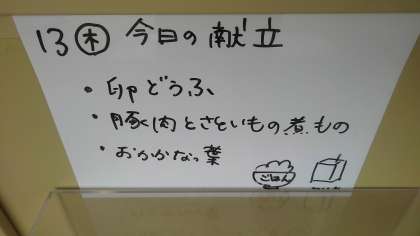 13 木 今日の献立
・卵どうふ
・豚肉とさといもの煮もの
・おかかなっ葉
ごはん